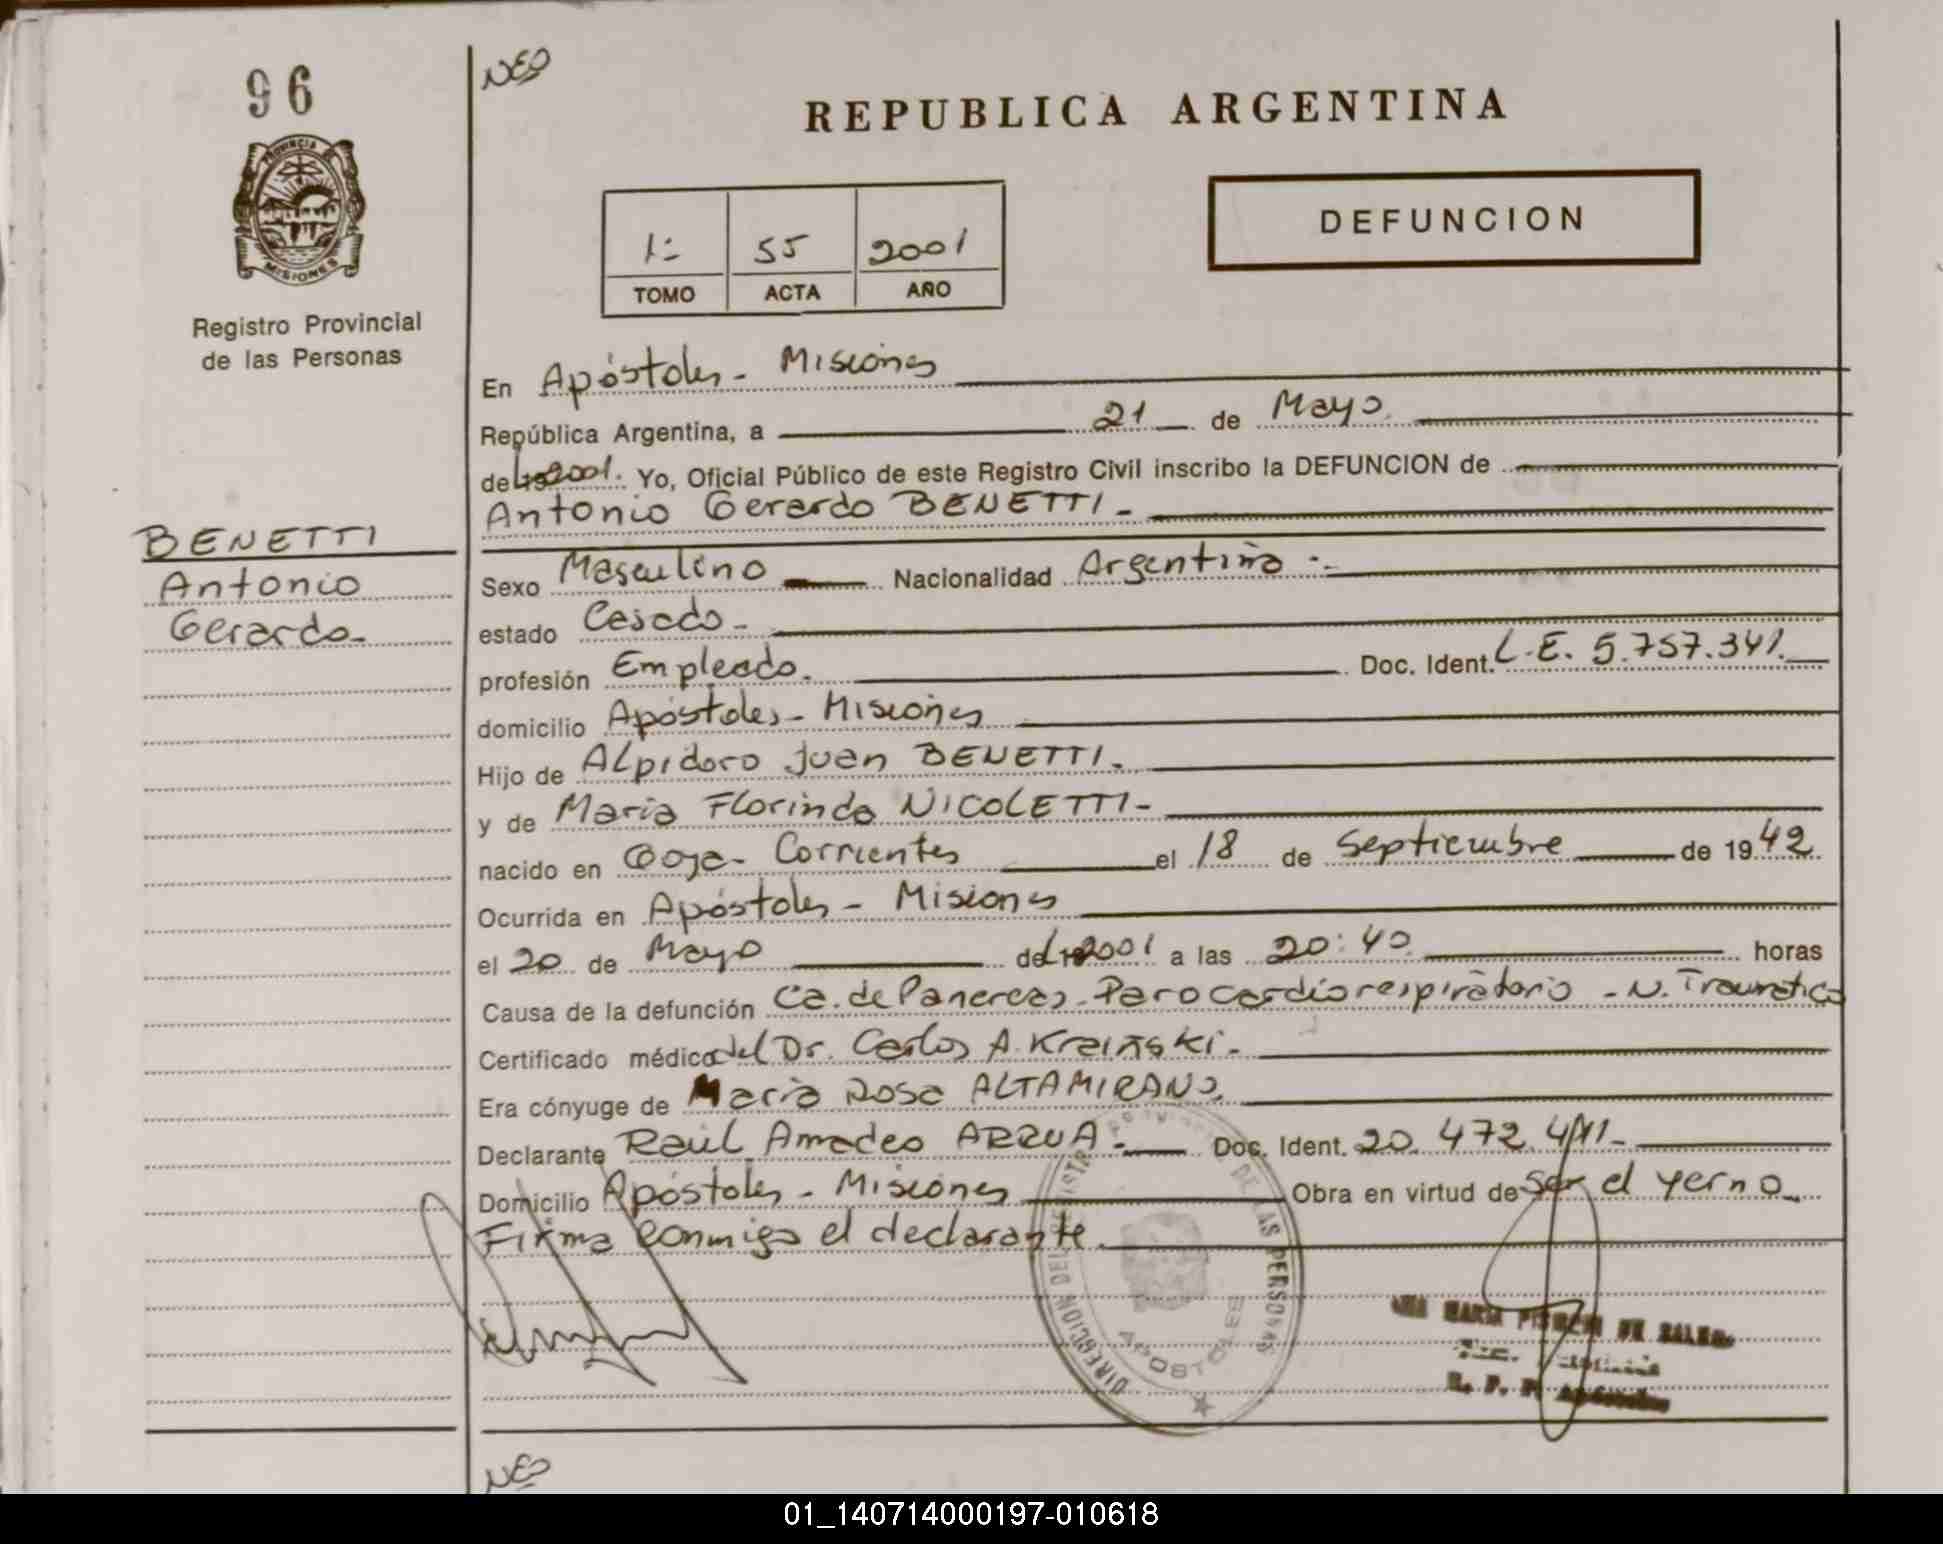 96
NEO
REPUBLICA ARGENTINA
PROVINCIA DE
MISIONES
DEFUNCION
1:
55
2001
TOMO
ACTA
AÑO
Registro Provincial
de las Personas
En Apóstoles - Misiones
República Argentina, a 21 de Mayo
del 2001. Yo, Oficial Público de este Registro Civil inscribo la DEFUNCION de
Antonio Gerardo BENETTI.-
BENETTI
Antonio
Gerardo-
Sexo Masculino Nacionalidad Argentina.-
estado Casado-
profesión Empleado. Doc. Ident. L.E. 5.757.341.
domicilio Apóstoles - Misiones
Hijo de Alpidoro Juan BENETTI.
y de María Florinda NICOLETTI-
nacido en Goya - Corrientes el 18 de Septiembre de 1942
Ocurrida en Apóstoles - Misiones
el 20 de Mayo del 2001 a las 20:40 horas
Causa de la defunción Ca. de Pancreas - Paro cardiorespiratorio - N. Traumatico
Certificado médico del Dr. Carlos A. Krainski.
Era cónyuge de María Rosa ALTAMIRANO.
Declarante Raúl Amadeo ARRUA.- Doc. Ident. 20.472.411-
Domicilio Apóstoles - Misiones Obra en virtud de ser el yerno
Firma conmigo el declarante.
DIRECCION DEL REGISTRO DE LAS PERSONAS
APOSTOLES
NEO
01_140714000197-010618